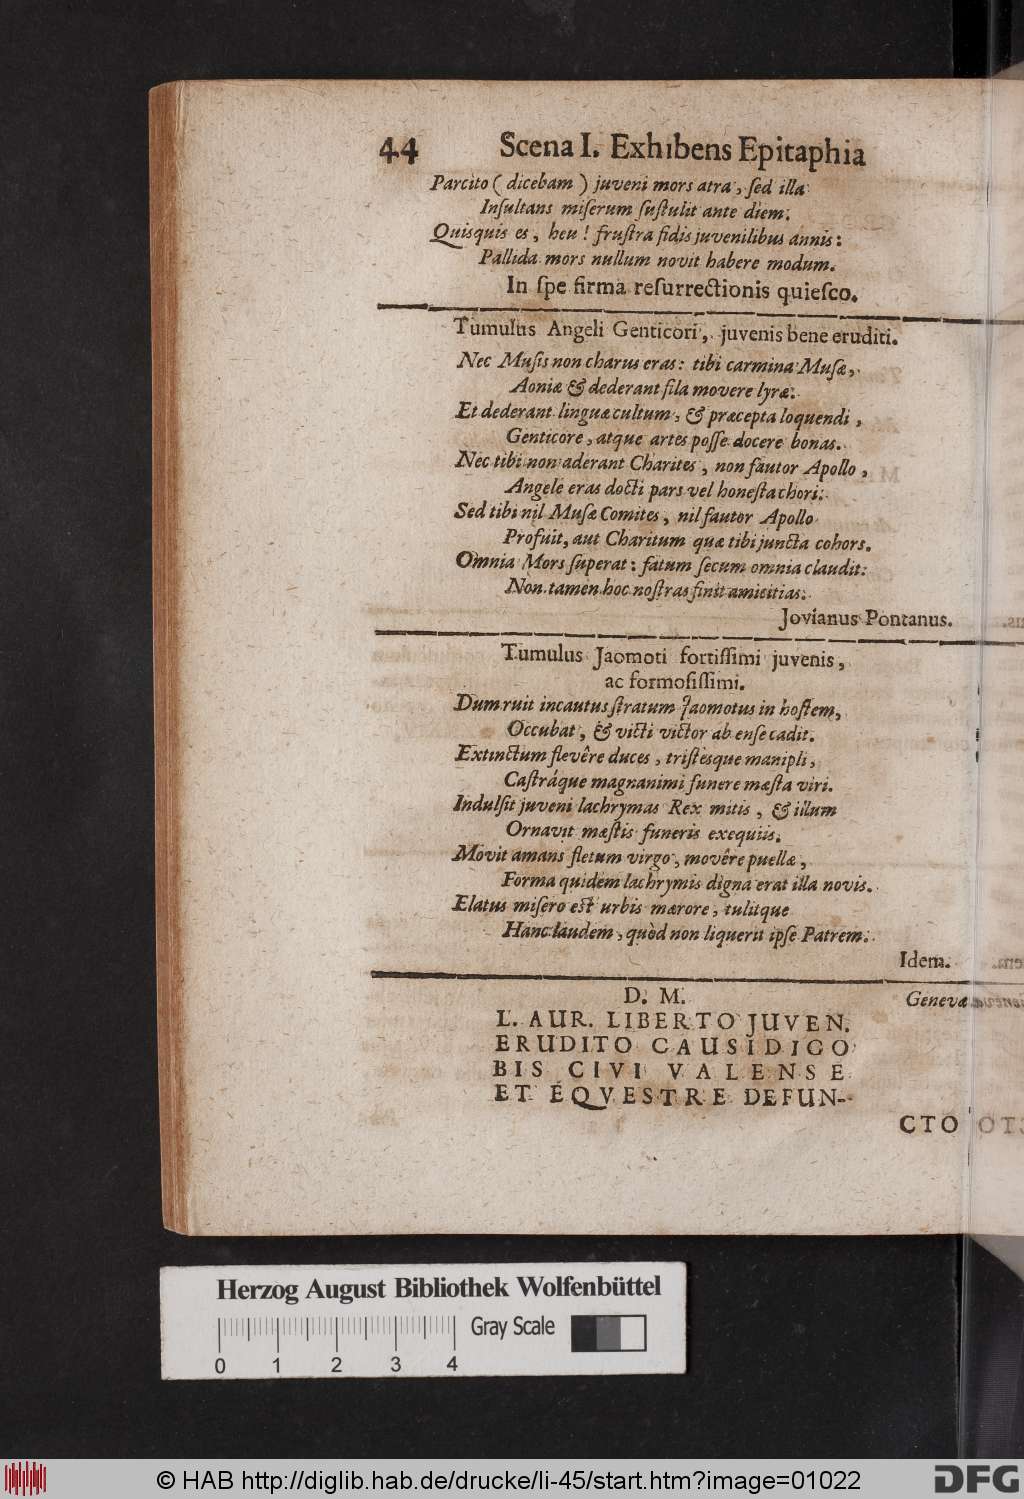 44 Scena I. Exhibens Epitaphia
Parcito ( dicebam ) juveni mors atra, ſed illa
Inſultans miſerum ſuſtulit ante diem.
Quisquis es, heu ! fruſtra fidis juvenilibus annis:
Pallida mors nullum novit habere modum.
In ſpe firma reſurrectionis quieſco.
Tumulus Angeli Genticori, juvenis bene eruditi.
Nec Muſis non charus eras: tibi carmina Muſæ,
Aoniæ & dederant fila movere lyræ.
Et dederant linguæ cultum, & præcepta loquendi,
Genticore, atque artes poſſe docere bonas.
Nec tibi non aderant Charites, non fautor Apollo,
Angele eras docti pars vel honeſta chori.
Sed tibi nil Muſæ Comites, nil fautor Apollo
Profuit, aut Charitum quæ tibi juncta cohors.
Omnia Mors ſuperat: fatum ſecum omnia claudit:
Non tamen hoc noſtras finit amicitias.
Jovianus Pontanus.
Tumulus Jaomoti fortiſſimi juvenis,
ac formoſiſſimi.
Dum ruit incautus ſtratum Jaomotus in hoſtem,
Occubat, & victi victor ab enſe cadit.
Extinctum flevêre duces, triſtesque manipli,
Caſtráque magnanimi funere mæſta viri.
Indulſit juveni lachrymas Rex mitis, & illum
Ornavit mæſtis funeris exequiis.
Movit amans fletum virgo, movêre puellæ,
Forma quidem lachrymis digna erat illa novis.
Elatus miſero eſt urbis mærore, tulitque
Hanc laudem, quòd non liquerit ipſe Patrem.
Idem.
D. M. Genevæ
L. AUR. LIBERTO JUVEN.
ERUDITO CAUSIDICO
BIS CIVI VALENSE
ET EQVESTRE DEFUN-
CTO
Herzog August Bibliothek Wolfenbüttel
Gray Scale
0 1 2 3 4
© HAB http://diglib.hab.de/drucke/li-45/start.htm?image=01022
DFG